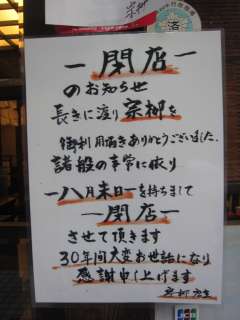 宗柳
済
－閉店－
のお知らせ
長きに渡り宗柳を
御利用頂きありがとうございました。
諸般の事常に依り
－八月末日－を持ちまして
－閉店－
させて頂きます
30年間大変お世話になり
感謝申し上げます
宗柳 店主
JCB